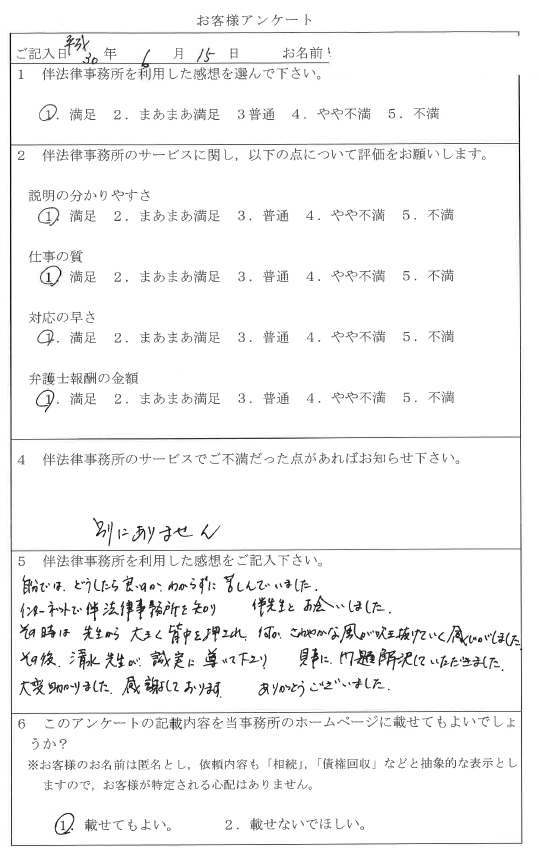 お客様アンケート
ご記入日 平成30年 6月 15日 お名前
1 伴法律事務所を利用した感想を選んで下さい。
①. 満足 2. まあまあ満足 3 普通 4. やや不満 5. 不満
2 伴法律事務所のサービスに関し，以下の点について評価をお願いします。
説明の分かりやすさ
①. 満足 2. まあまあ満足 3. 普通 4. やや不満 5. 不満
仕事の質
①. 満足 2. まあまあ満足 3. 普通 4. やや不満 5. 不満
対応の早さ
①. 満足 2. まあまあ満足 3. 普通 4. やや不満 5. 不満
弁護士報酬の金額
①. 満足 2. まあまあ満足 3. 普通 4. やや不満 5. 不満
4 伴法律事務所のサービスでご不満だった点があればお知らせ下さい。
別にありません
5 伴法律事務所を利用した感想をご記入下さい。
自分では、どうしたら良いのか、わからずに苦しんでいました。
インターネットで伴法律事務所を知り 伴先生とお会いしました。
その時は先生から大きく背中を押され、何か、さわやかな風が吹き抜けていく感じがしました
その後、清水先生が誠実に導いて下さり 見事に問題解決していただきました。
大変助かりました。感謝しております。 ありがとうございました。
6 このアンケートの記載内容を当事務所のホームページに載せてもよいでしょ
うか？
※お客様のお名前は匿名とし，依頼内容も「相続」，「債権回収」などと抽象的な表示とし
ますので，お客様が特定される心配はありません。
①. 載せてもよい。 2. 載せないでほしい。